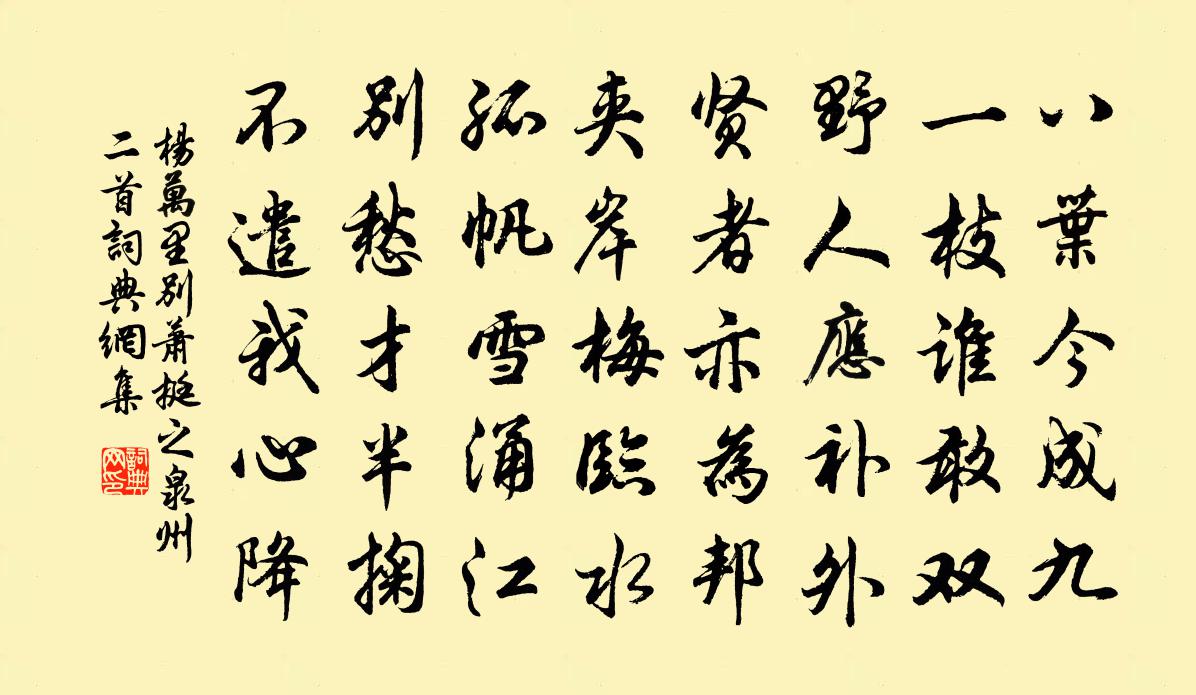 八葉今成九
一枝谁敢双
野人應补外
贤者亦為邦
夹岸梅臨水
孤帆雪涌江
别愁才半掬
不遣我心降
楊萬里别蕭挺之泉州
二首詞典網集
詞典网印